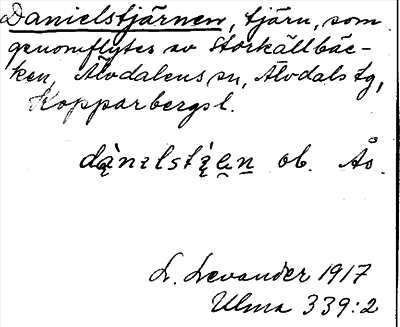 Danielstjärnen, tjärn, som
genomflytes av Storkällbäc-
ken, Älvdalens sn, Älvdals tg,
Kopparbergs l.
ob. Ås.
L. Levander 1917
Ulma 339:2